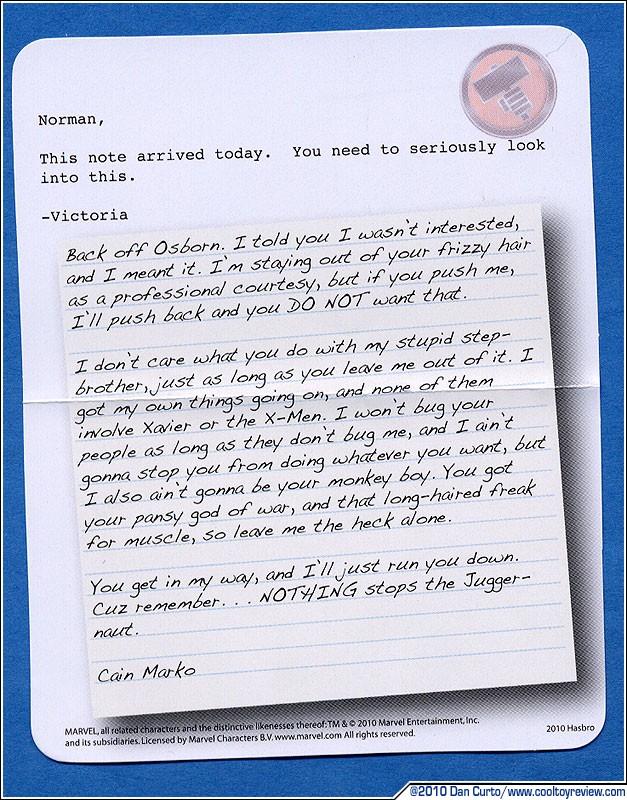 Norman,
This note arrived today.  You need to seriously look
into this.
-Victoria
Back off Osborn. I told you I wasn't interested,
and I meant it. I'm staying out of your frizzy hair
as a professional courtesy, but if you push me,
I'll push back and you DO NOT want that.
I don't care what you do with my stupid step-
brother, just as long as you leave me out of it. I
got my own things going on, and none of them
involve Xavier or the X-Men. I won't bug your
people as long as they don't bug me, and I ain't
gonna stop you from doing whatever you want, but
I also ain't gonna be your monkey boy. You got
your pansy god of war, and that long-haired freak
for muscle, so leave me the heck alone.
You get in my way, and I'll just run you down.
Cuz remember. . . NOTHING stops the Jugger-
naut.
Cain Marko
MARVEL, all related characters and the distinctive likenesses thereof: TM & © 2010 Marvel Entertainment, Inc.
and its subsidiaries. Licensed by Marvel Characters B.V. www.marvel.com All rights reserved.
2010 Hasbro
©2010 Dan Curto/www.cooltoyreview.com